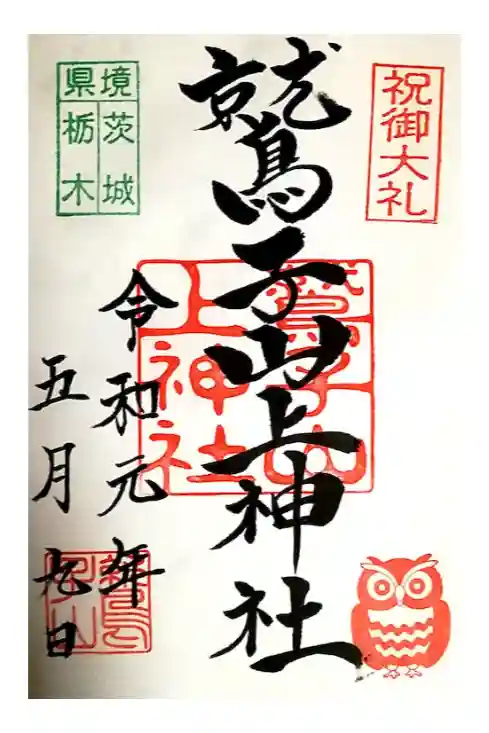 祝御大礼
鷲子山上神社
鷲子山
上神社
県境
茨城
栃木
令和元年
五月九日